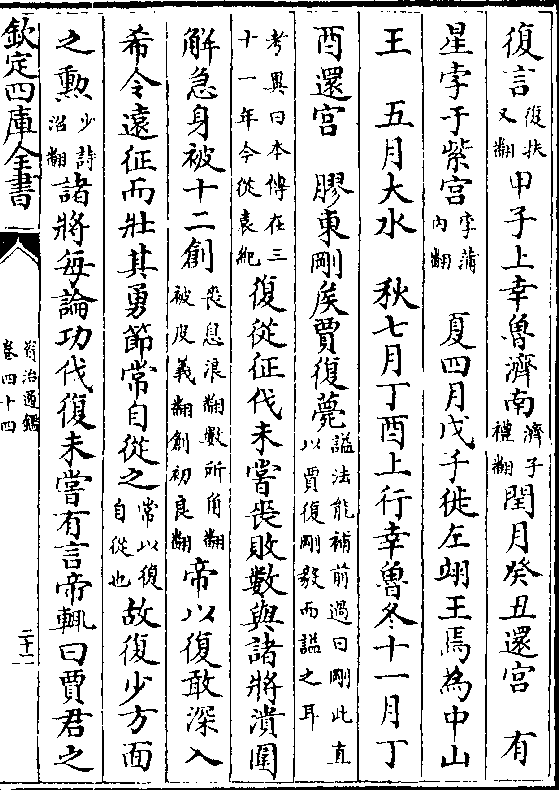 復言復扶又翻甲子上幸魯濟南濟子禮翻閏月癸丑還宫　有
星孛于紫宫孛蒲內翻　夏四月戊子徙左翊王焉為中山
王　五月大水　秋七月丁酉上行幸魯冬十一月丁
酉還宫　膠東剛矦賈復薨諡法能補前過曰剛此直以賈復剛毅而諡之耳
考異曰本傳在三十一年今從袁紀復從征伐未嘗喪敗數與諸將潰圍
解急身被十二創喪息浪翻數所角翻被皮義翻創初良翻帝以復敢深入
希令遠征而壯其勇節常自從之常以復自從也故復少方面
之勲少詩沼翻諸將每論功伐復未嘗有言帝輒曰賈君之
欽定四庫全書
資治通鑑
卷四十四
二十二